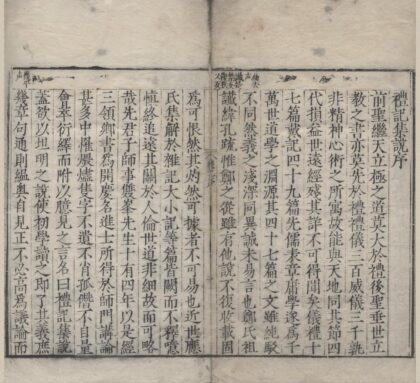 禮記集說序
前聖繼天立極之道莫大於禮後聖垂世立
教之書亦莫先於禮禮儀三百威儀三千孰
非精神心術之所寓故能與天地同其節四
代損益世遠經殘其詳不可得聞矣儀禮十
七篇戴記四十九篇先儒表章庸學遂爲千
萬世道學之淵源其四十七篇之文雖純駁
不同然義之淺深同異誠未易言也鄭氏祖
讖緯孔疏惟鄭之從雖有他說不復收載固
爲可恨然其灼然可據者不可易也近世應
氏集解於雜記大小記等篇皆闕而不釋噫
愼終追遠其關於人倫世道非細故而可略
哉先君子師事雙峯先生十有四年以是經
三領鄉書爲開慶名進士所得於師門講論
甚多中罹煨燼隻字不遺不肖孤僭不自量
會萃衍繹而附以臆見之言名曰禮記集說
蓋欲以坦明之說使初學讀之即了其義庶
幾章句通則縕奧自見正不必高爲議論而